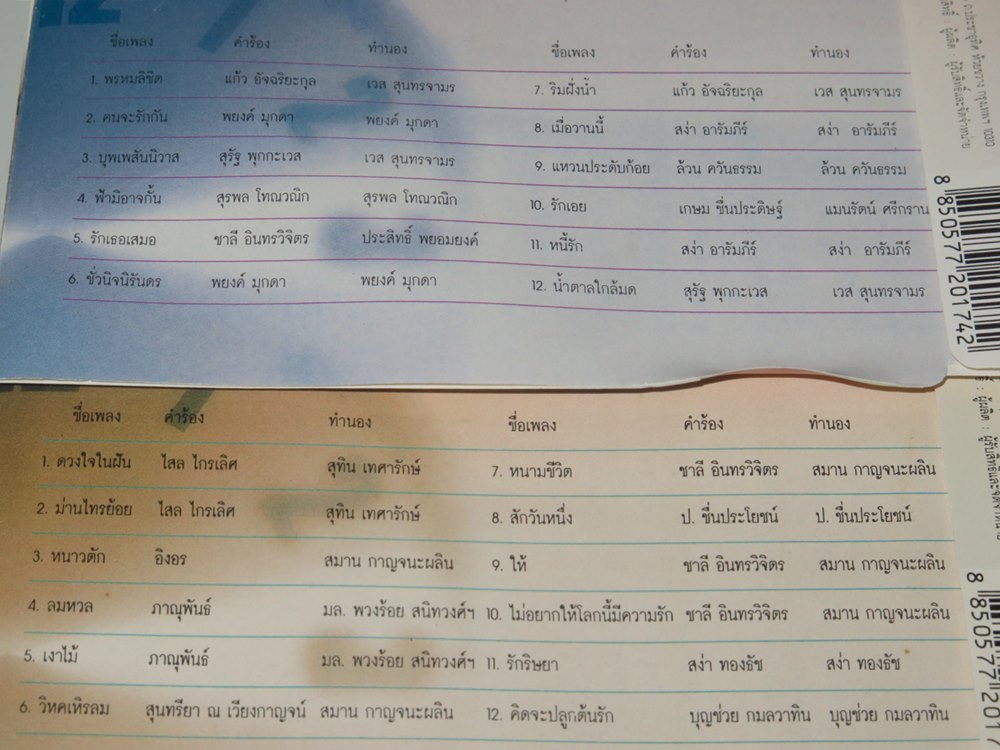 ชื่อเพลง คำร้อง ทำนอง
1. พรหมลิขิต แก้ว อัจฉริยะกุล เวส สุนทรจามร
2. คนจะรักกัน พยงค์ มุกดา พยงค์ มุกดา
3. บุพเพสันนิวาส สุรัฐ พุกกะเวส เวส สุนทรจามร
4. ฟ้ามิอาจกั้น สุรพล โทณวณิก สุรพล โทณวณิก
5. รักเธอเสมอ ชาลี อินทรวิจิตร ประสิทธิ์ พยอมยงค์
6. ชั่วนิจนิรันดร พยงค์ มุกดา พยงค์ มุกดา
ชื่อเพลง คำร้อง ทำนอง
7. ริมฝั่งน้ำ แก้ว อัจฉริยะกุล เวส สุนทรจามร
8. เมื่อวานนี้ สง่า อารัมภีร์ สง่า อารัมภีร์
9. แหวนประดับก้อย ล้วน ควันธรรม ล้วน ควันธรรม
10. รักเอย เกษม ชื่นประดิษฐ์ แมนรัตน์ ศรีกราน
11. หนี้รัก สง่า อารัมภีร์ สง่า อารัมภีร์
12. น้ำตาลใกล้มด สุรัฐ พุกกะเวส เวส สุนทรจามร
8 850577 201742
ชื่อเพลง คำร้อง ทำนอง
1. ดวงใจในฝัน ไสล ไกรเลิศ สุทิน เทศารักษ์
2. ม่านไทรย้อย ไสล ไกรเลิศ สุทิน เทศารักษ์
3. หนาวตัก อิงอร สมาน กาญจนะผลิน
4. ลมหวล ภาณุพันธ์ มล. พวงร้อย สนิทวงศ์ฯ
5. เงาไม้ ภาณุพันธ์ มล. พวงร้อย สนิทวงศ์ฯ
6. วิหคเหิรลม สุนทรียา ณ เวียงกาญจน์ สมาน กาญจนะผลิน
ชื่อเพลง คำร้อง ทำนอง
7. หนามชีวิต ชาลี อินทรวิจิตร สมาน กาญจนะผลิน
8. สักวันหนึ่ง ป. ชื่นประโยชน์ ป. ชื่นประโยชน์
9. ให้ ชาลี อินทรวิจิตร สมาน กาญจนะผลิน
10. ไม่อยากให้โลกนี้มีความรัก ชาลี อินทรวิจิตร สมาน กาญจนะผลิน
11. รักริษยา สง่า ทองธัช สง่า ทองธัช
12. คิดจะปลูกต้นรัก บุญช่วย กมลวาทิน บุญช่วย กมลวาทิน
8 850577 201